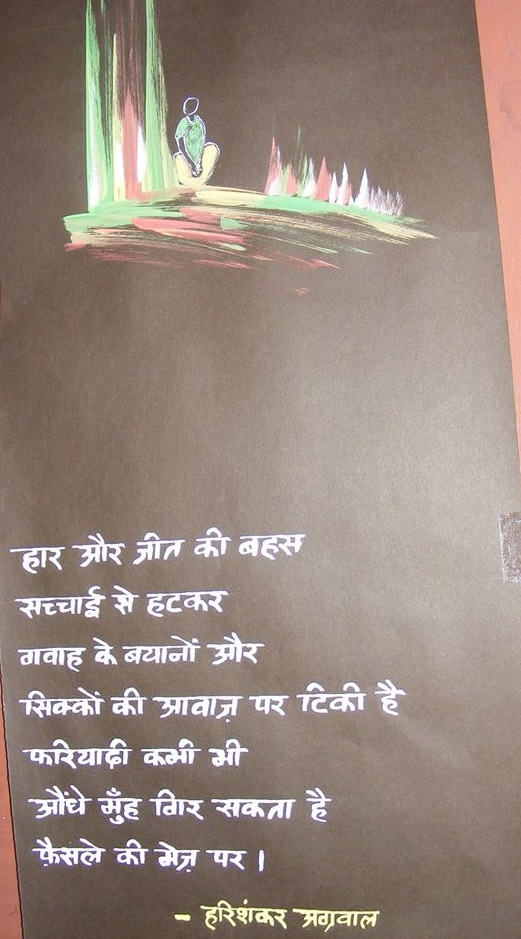 हार और जीत की बहस
सच्चाई से हटकर
गवाह के बयानों और
सिक्कों की आवाज़ पर टिकी है
फरियादी कभी भी
औंधे मुँह गिर सकता है
फ़ैसले की मेज़ पर।
- हरिशंकर अग्रवाल